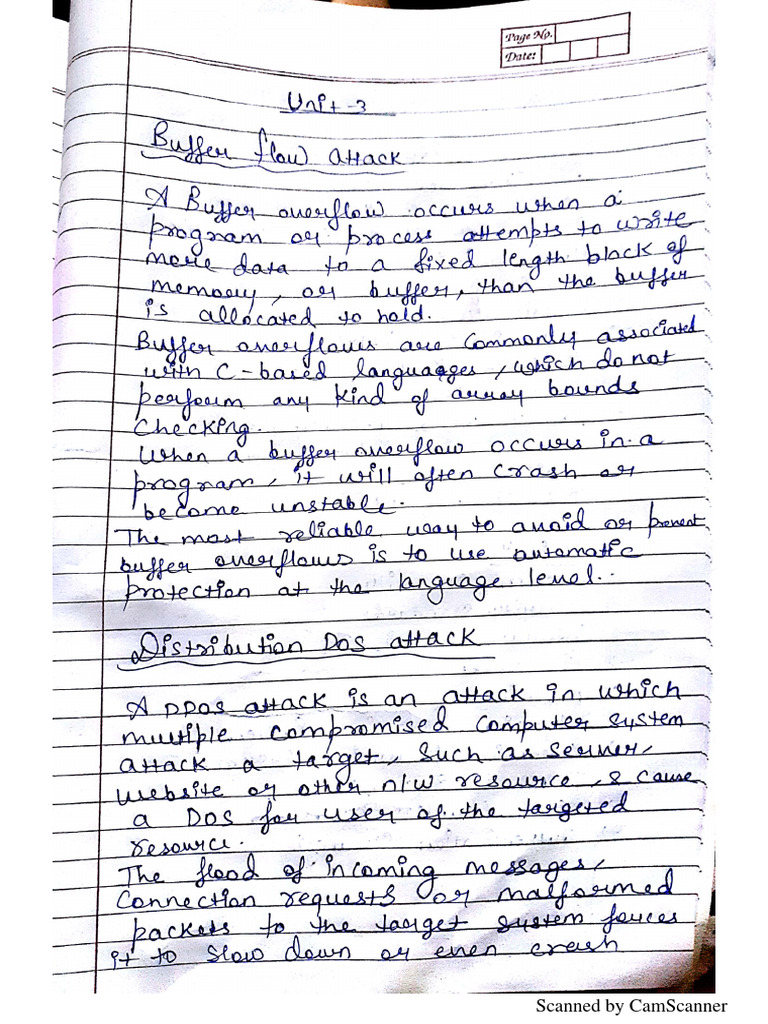 Page No.
Date:
Unit-3
Buffer flow attack
A Buffer overflow occurs when a
program or process attempts to write
more data to a fixed length block of
memory, or buffer, than the buffer
is allocated to hold.
Buffer overflows are commonly associated
with C-based languages, which do not
perform any kind of array bounds
checking.
When a buffer overflow occurs in a
program, it will often crash or
become unstable.
The most reliable way to avoid or prevent
buffer overflows is to use automatic
protection at the language level.
Distribution Dos attack
A DDOS attack is an attack in which
multiple compromised computer system
attack a target, such as server,
website or other n/w resource, & cause
a DOS for user of the targeted
resource.
The flood of incoming messages,
connection requests or malformed
packets to the target system forces
it to slow down or even crash
Scanned by CamScanner